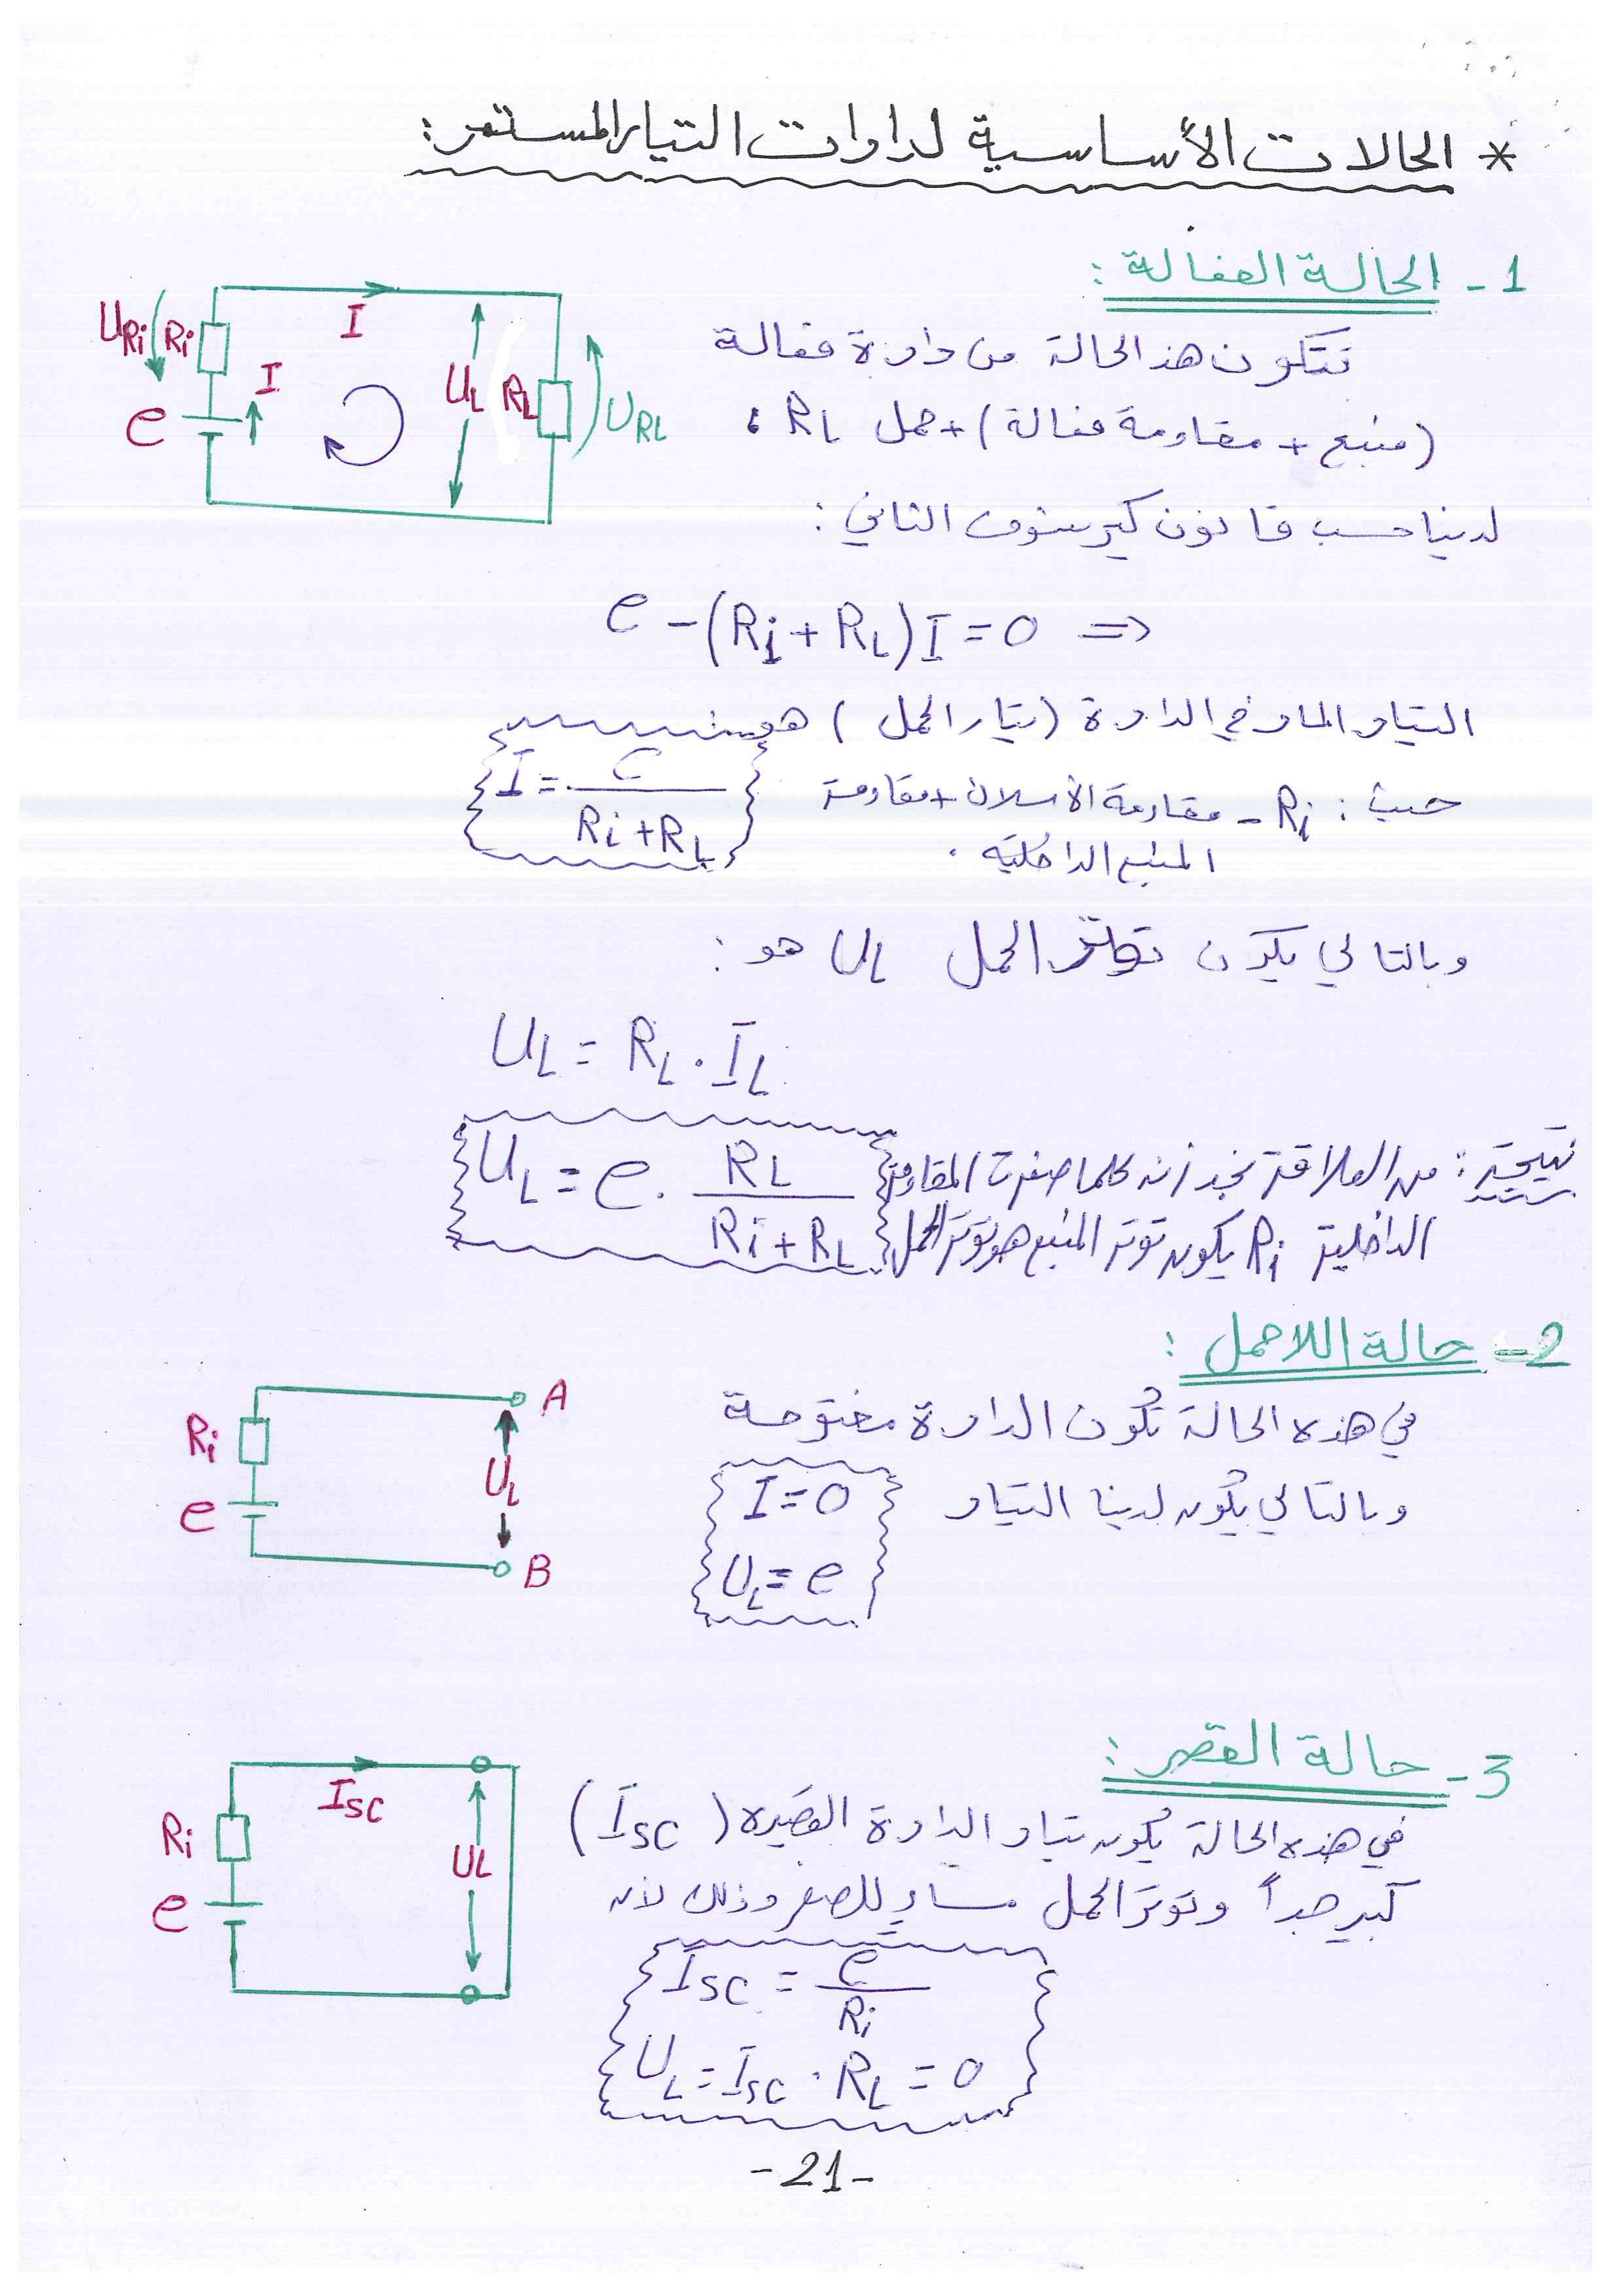 * الحالات الأساسية لدارات التيار المستمر:
1 - الحالة الفعالة:
تتكون هذ الحالة من دارة فعالة
(منبع + مقاومة فعالة) + حمل RL ؛
لدينا حسب قانون كيرشوف الثاني:
e - (Ri + RL) I = 0 =>
التيار المار في الدارة (تيار الحمل) هو:
I = e / (Ri + RL)
حيث: Ri - مقاومة الأسلاك + مقاومة
المنبع الداخلية.
وبالتالي يكون توتر الحمل UL هو:
UL = RL . IL
UL = e . RL / (Ri + RL)
نتيجة: من العلاقة نجد أنه كلما صغرت المقاومة
الداخلية Ri يكون توتر المنبع هو توتر الحمل
URi Ri I UL RL URL
I
e
2 - حالة اللاحمل:
في هذه الحالة تكون الدارة مفتوحة
وبالتالي يكون لدينا التيار
I = 0
UL = e
A
Ri
UL
e
B
3 - حالة القصر:
في هذه الحالة يكون تيار الدارة القصيرة (ISC)
كبير جداً وتوتر الحمل مساوٍ للصفر وذلك لأنه
ISC = e / Ri
UL = ISC . RL = 0
ISC
Ri
UL
e
- 21 -